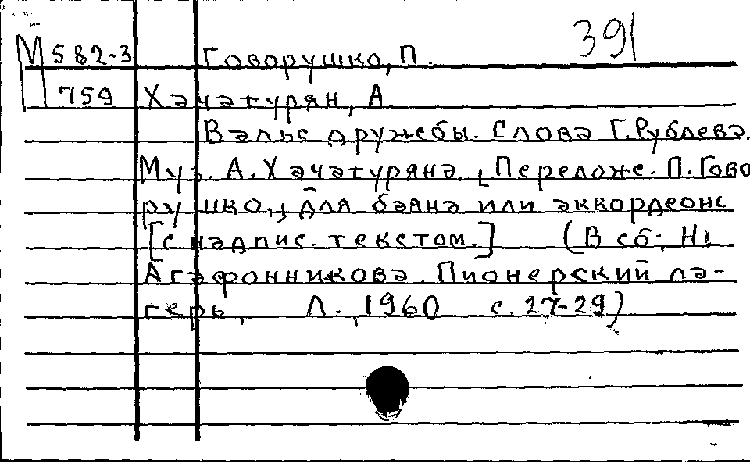 391
М 582-3 Говорушко, П.
759 Хачатурян, А.
Вальс дружбы. Слова Г. Рублева.
Муз. А. Хачатуряна. [Переложе. П. Гово
рушко,] для баяна или аккордеона
[с надпис. текстом.] (В сб: Н.
Агафонникова. Пионерский ла-
герь, Л., 1960 с. 27-29)